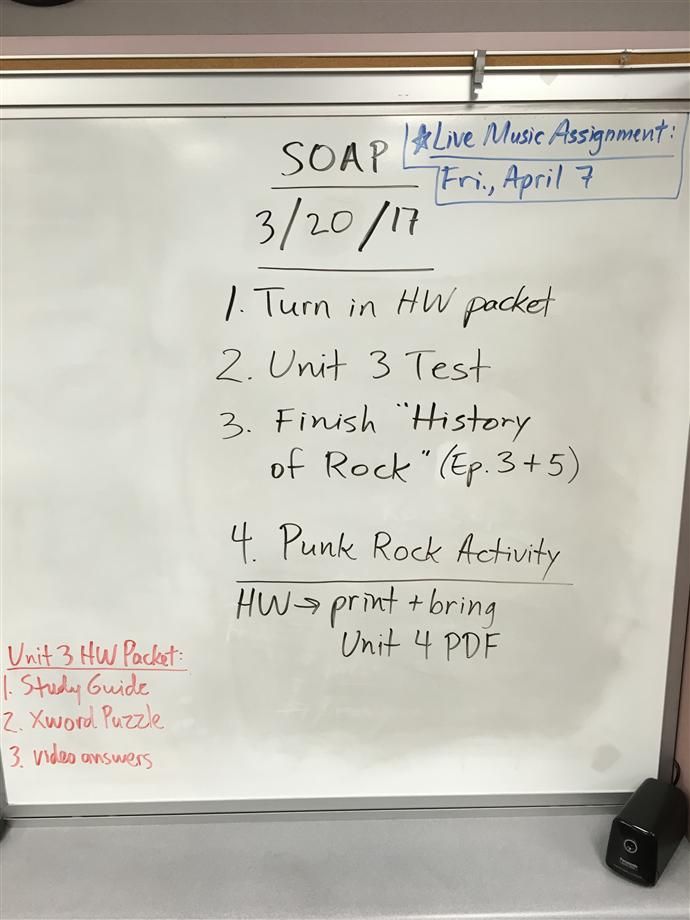 SOAP
3/20/17
☆Live Music Assignment:
Fri., April 7
1. Turn in HW packet
2. Unit 3 Test
3. Finish "History
of Rock" (Ep. 3 + 5)
4. Punk Rock Activity
HW → print + bring
Unit 4 PDF
Unit 3 HW Packet:
1. Study Guide
2. Xword Puzzle
3. video answers
Panasonic